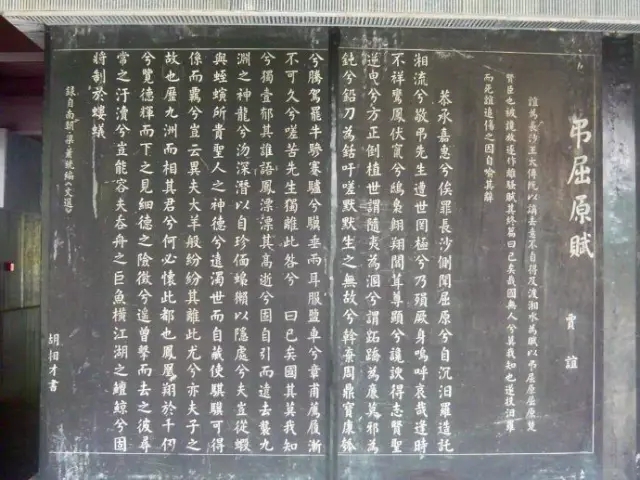 吊屈原賦
賈誼
誼為長沙王太傅既以謫去意不自得及渡湘水為賦以吊屈原屈原楚
賢臣也被讒放逐作離騷賦其終篇曰已矣哉國無人兮莫我知也遂投汨羅
而死誼追傷之因自喻其辭
恭承嘉惠兮俟罪長沙側聞屈原兮自沉汨羅造託
湘流兮敬吊先生遭世罔極兮乃殞厥身嗚呼哀哉逢時
不祥鸞鳳伏竄兮鴟梟翱翔闒茸尊顯兮讒諛得志賢聖
逆曳兮方正倒植世謂隨夷為溷兮謂跖蹻為廉莫邪為
鈍兮鉛刀為銛吁嗟默默生之無故兮斡棄周鼎寶康瓠
兮騰駕罷牛驂蹇驢兮驥垂兩耳服鹽車兮章甫薦履漸
不可久兮嗟苦先生獨離此咎兮 曰已矣國其莫我知
兮獨壹郁其誰語鳳漂漂其高逝兮固自引而遠去襲九
淵之神龍兮沕深潛以自珍偭蟂獺以隱處兮夫豈從蝦
與蛭螾所貴聖人之神德兮遠濁世而自藏使騏驥可得
係而羈兮豈云異夫犬羊般紛紛其離此尤兮亦夫子之
故也歷九洲而相其君兮何必懷此都也鳳凰翔於千仞
兮覽德輝而下之見細德之險徵兮遙曾擊而去之彼尋
常之汙瀆兮豈能容夫吞舟之巨魚橫江湖之鱣鯨兮固
將制於螻蟻
錄自南朝梁蕭統編《文選》
胡相才書